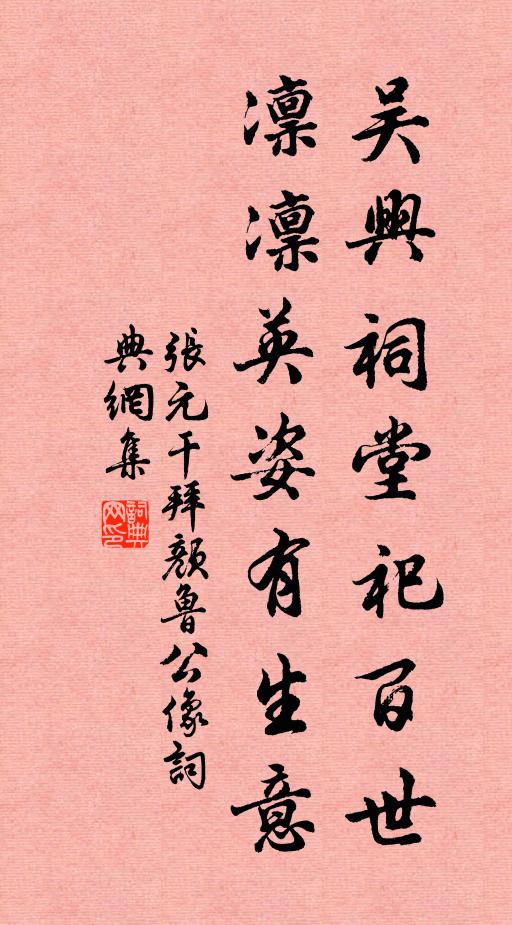 吴興祠堂祀百世
凛凛英姿有生意
張元干拜顔魯公像詞
典網集
詞典網印